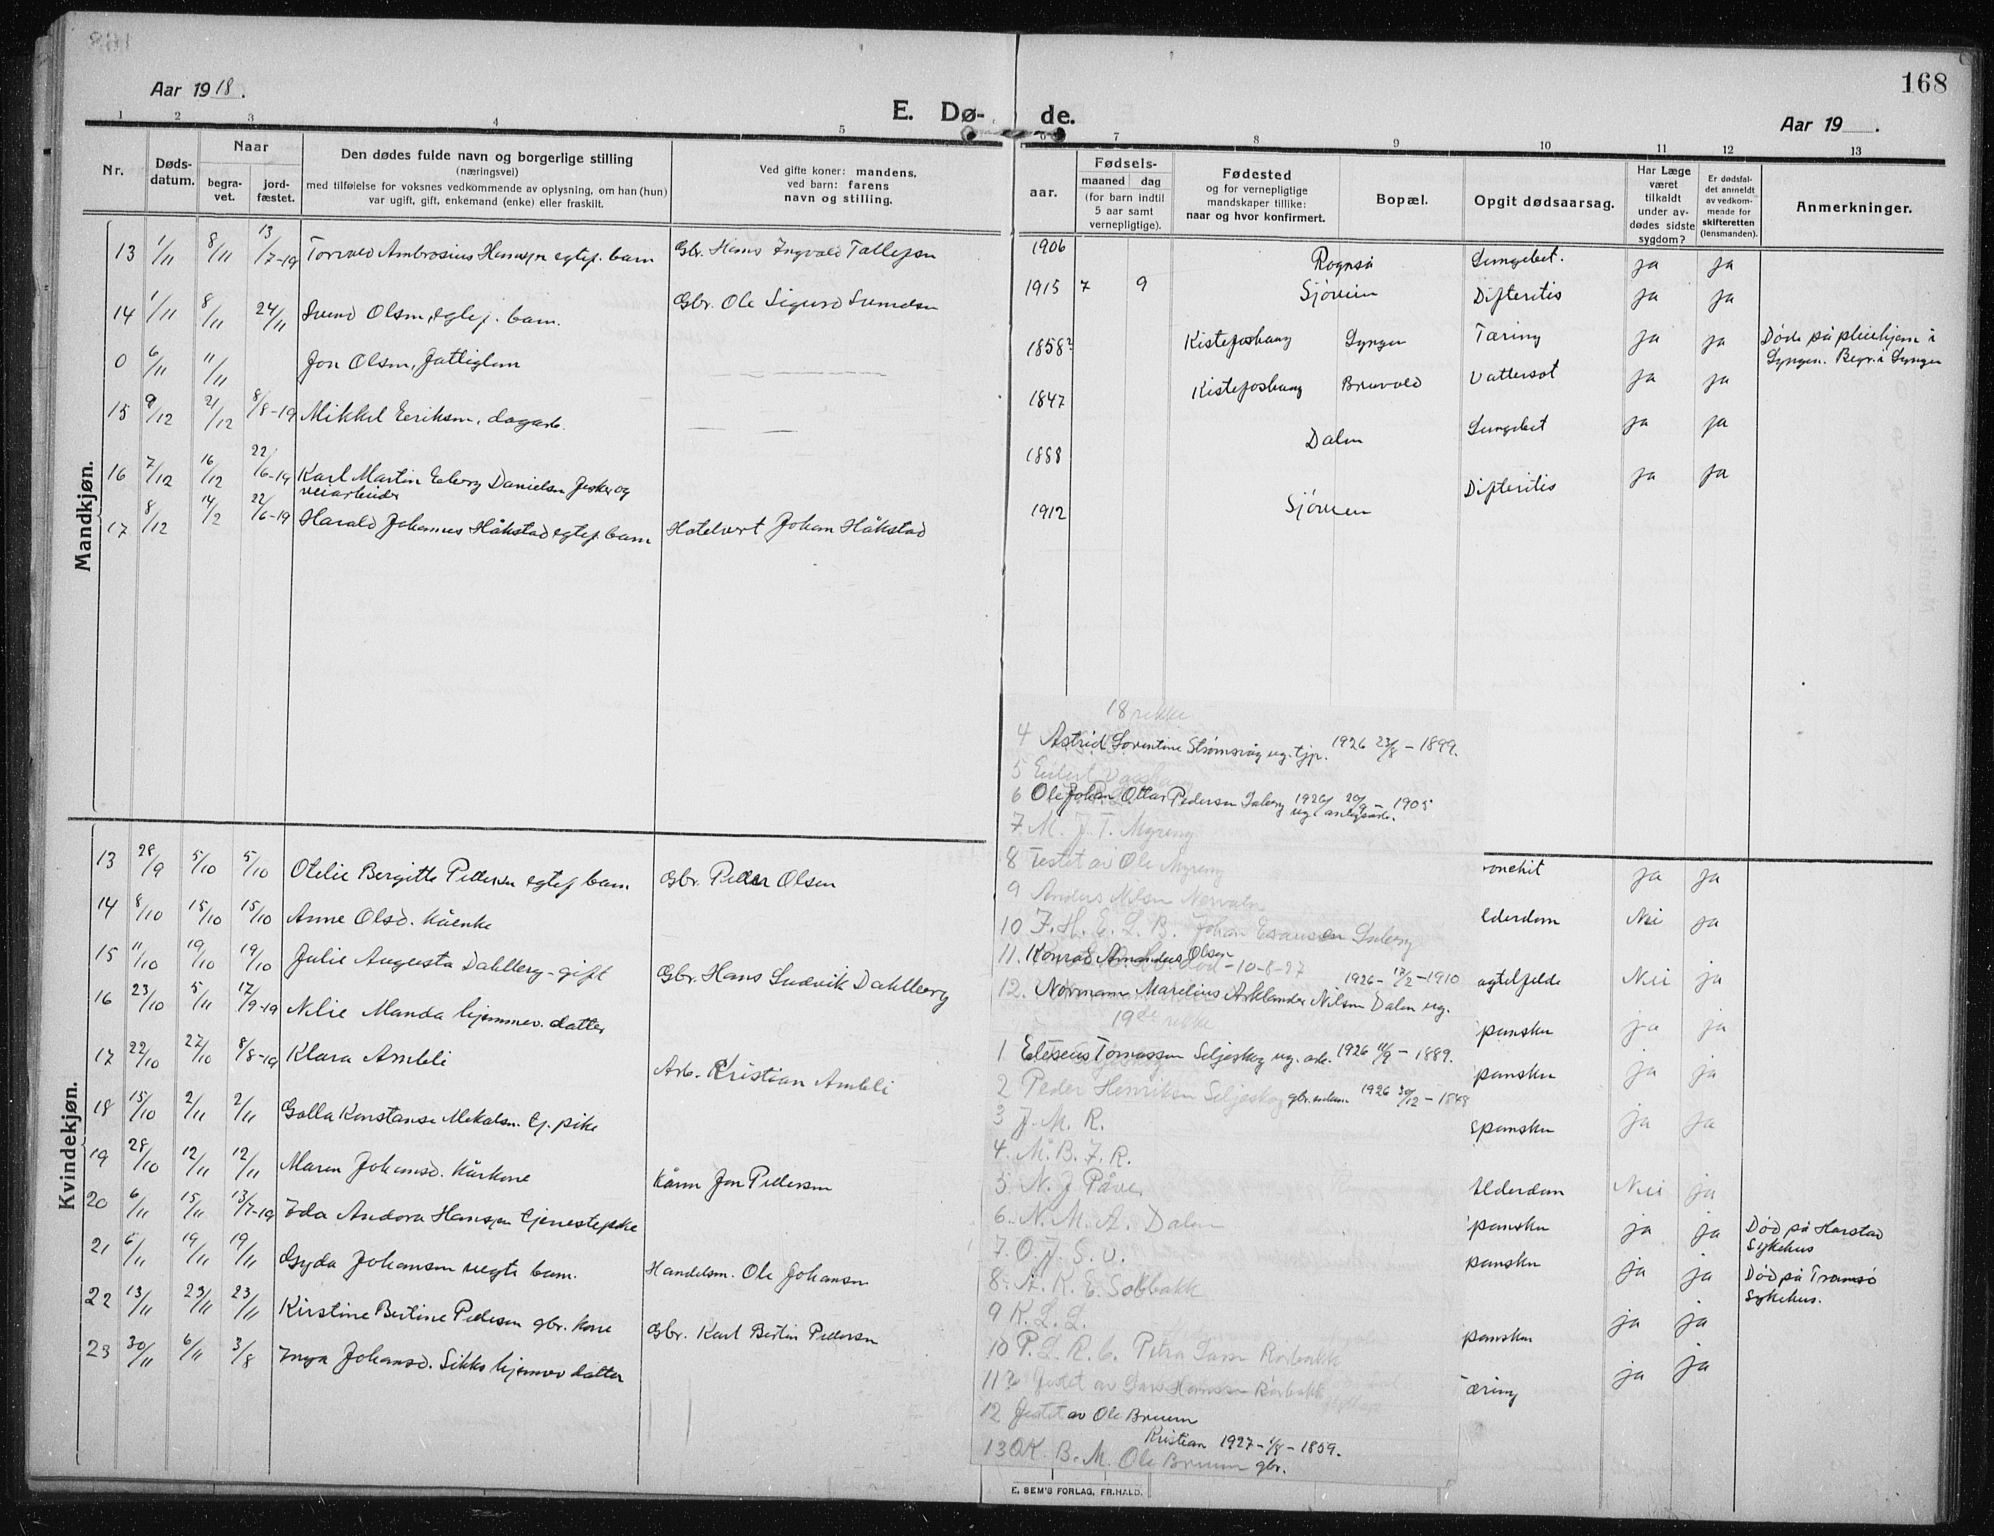 Aar 1918.
E. Dø-
de.
168
Aar 19 .
1 2 3 4 5 6 7 8 9 10 11 12 13
Nr.
Døds-
datum.
Naar
begra-
vet.
jord-
fæstet.
Den dødes fulde navn og borgerlige stilling
(næringsvei)
med tilføielse for voksnes vedkommende av oplysning, om han (hun)
var ugift, gift, enkemand (enke) eller fraskilt.
Ved gifte koner: mandens.
ved barn: farens
navn og stilling.
aar.
Fødsels-
maaned dag
(for barn indtil
5 aar samt
vernepligtige).
Fødested
og for vernepligtige
mandskaper tillike:
naar og hvor konfirmert.
Bopæl.
Opgit dødsaarsag.
Har Læge
været
tilkaldt
under av-
dødes sidste
sygdom?
Er dødsfal-
det anmeldt
av vedkom-
mende for
skifteretten
(lensmanden).
Anmerkninger.
Mandkjøn.
13 1/11 8/11 13/7-19 Torvald Ambrosius Hansen egtef. barn Gbr. Hans Ingvald Tollefsen 1906 Rognså Lungebet. ja ja
14 1/11 8/11 24/11 Svend Olsen, egtef. barn. Gbr. Ole Sigurd Svendsen 1915 7 9 Sjøveien Difteritis ja ja
0 6/11 11/11 Jon Olsen, fattiglem 1858? Kistefoshaug Lyngen Tæring ja ja Døde på pleiehjem i
Lyngen. Begr. i Lyngen
15 9/12 21/12 8/8-19 Mikkel Eeriksen, dagarb. 1847 Kistefoshaug Bruvold Vattersot ja ja
16 7/12 16/12 22/6-19 Karl Martin Edberg Danielsen fisker og
veiarbeider 1888 Dalen Lungebet ja ja
17 8/12 14/2 22/6-19 Harald Johannes Håkstad egtef. barn Hotelvert Johan Håkstad 1912 Sjøveien Difteritis ja ja
Kvindekjøn.
13 28/9 5/10 5/10 Otelie Bergitte Pedersen egtef barn Gbr. Peder Olsen ronchit ja ja
14 8/10 15/10 15/10 Anne Olsd. kåenke lderdom Nei ja
15 11/10 19/10 19/10 Julie Augusta Dahlberg - gift Gbr. Hans Ludvik Dahlberg agtelfelde Nei ja
16 23/10 5/11 17/9-19 Nelie Manda hjemmev. datter panskn ja ja
17 22/10 27/10 8/8-19 Klara Ambli Arb. Kristian Ambli panskn ja ja
18 15/10 2/11 2/11 Golla Konstanse Mikalsn. tj. pike spanskn ja ja
19 28/10 12/11 12/11 Maren Johansd. kårkone Kårm Jon Pedersen lderdom Nei ja
20 6/11 15/11 13/7-19 Ida Andora Hansen tjenestepike panskn ja ja Død på Harstad
Sykehus
21 6/11 19/11 19/11 Gyda Johansen uegte barn. Handelsm. Ole Johansn panskn ja ja Død på Tromsø
Sykehus.
22 13/11 23/11 23/11 Kirstine Bertine Pedersen gbr. kone Gbr. Karl Bertin Pedersen panskn ja ja
23 30/11 6/11 3/8 Inga Johansd. Sikko hjemmev datter æring ja ja
18 rekke
4 Astrid Lorentine Strømsvåg ug. tjp. 1926 23/8 - 1899.
5 Eilert Vasshaug
6 Ole Johan Ottar Pedersen Inberg 1926 20/9 - 1905
7 M. J. T. Myreng
8 Festet av Ole Myreng
9 Anders Nilsen Nervalen
10 F. H. E. L. B. Johan Esaussen Inberg
11. Konrad Amandus Olsen
død - 10-8-27
12. Normann Marelius Asklander Nilsen Dalen ug. 1926 - 17/2 - 1910
19de rekke
1 Eliseus Tomassen Seljeskog ug. arb. 1926 11/9 - 1889.
2 Peder Henriksen Seljeskog gbr. enkem. 1926 30/12 - 1848
3 J. M. R.
4. M. B. F. R.
5. N. J Påve.
6. N. M. A. Dalen
7. O. J. S. U.
8. A. R. E. Solbakk
9 K. L. L.
10 P. L. R. C. Petra Larsn Rorbakk
11 Festet av Lars Hansen Rørbakk
12 Festet av Ole Bruun
Kristian 1927 - 1/8 - 1859.
13 O K. B. M. Ole Bruun gbr.
E. SEM'S FORLAG, FR.HALD.